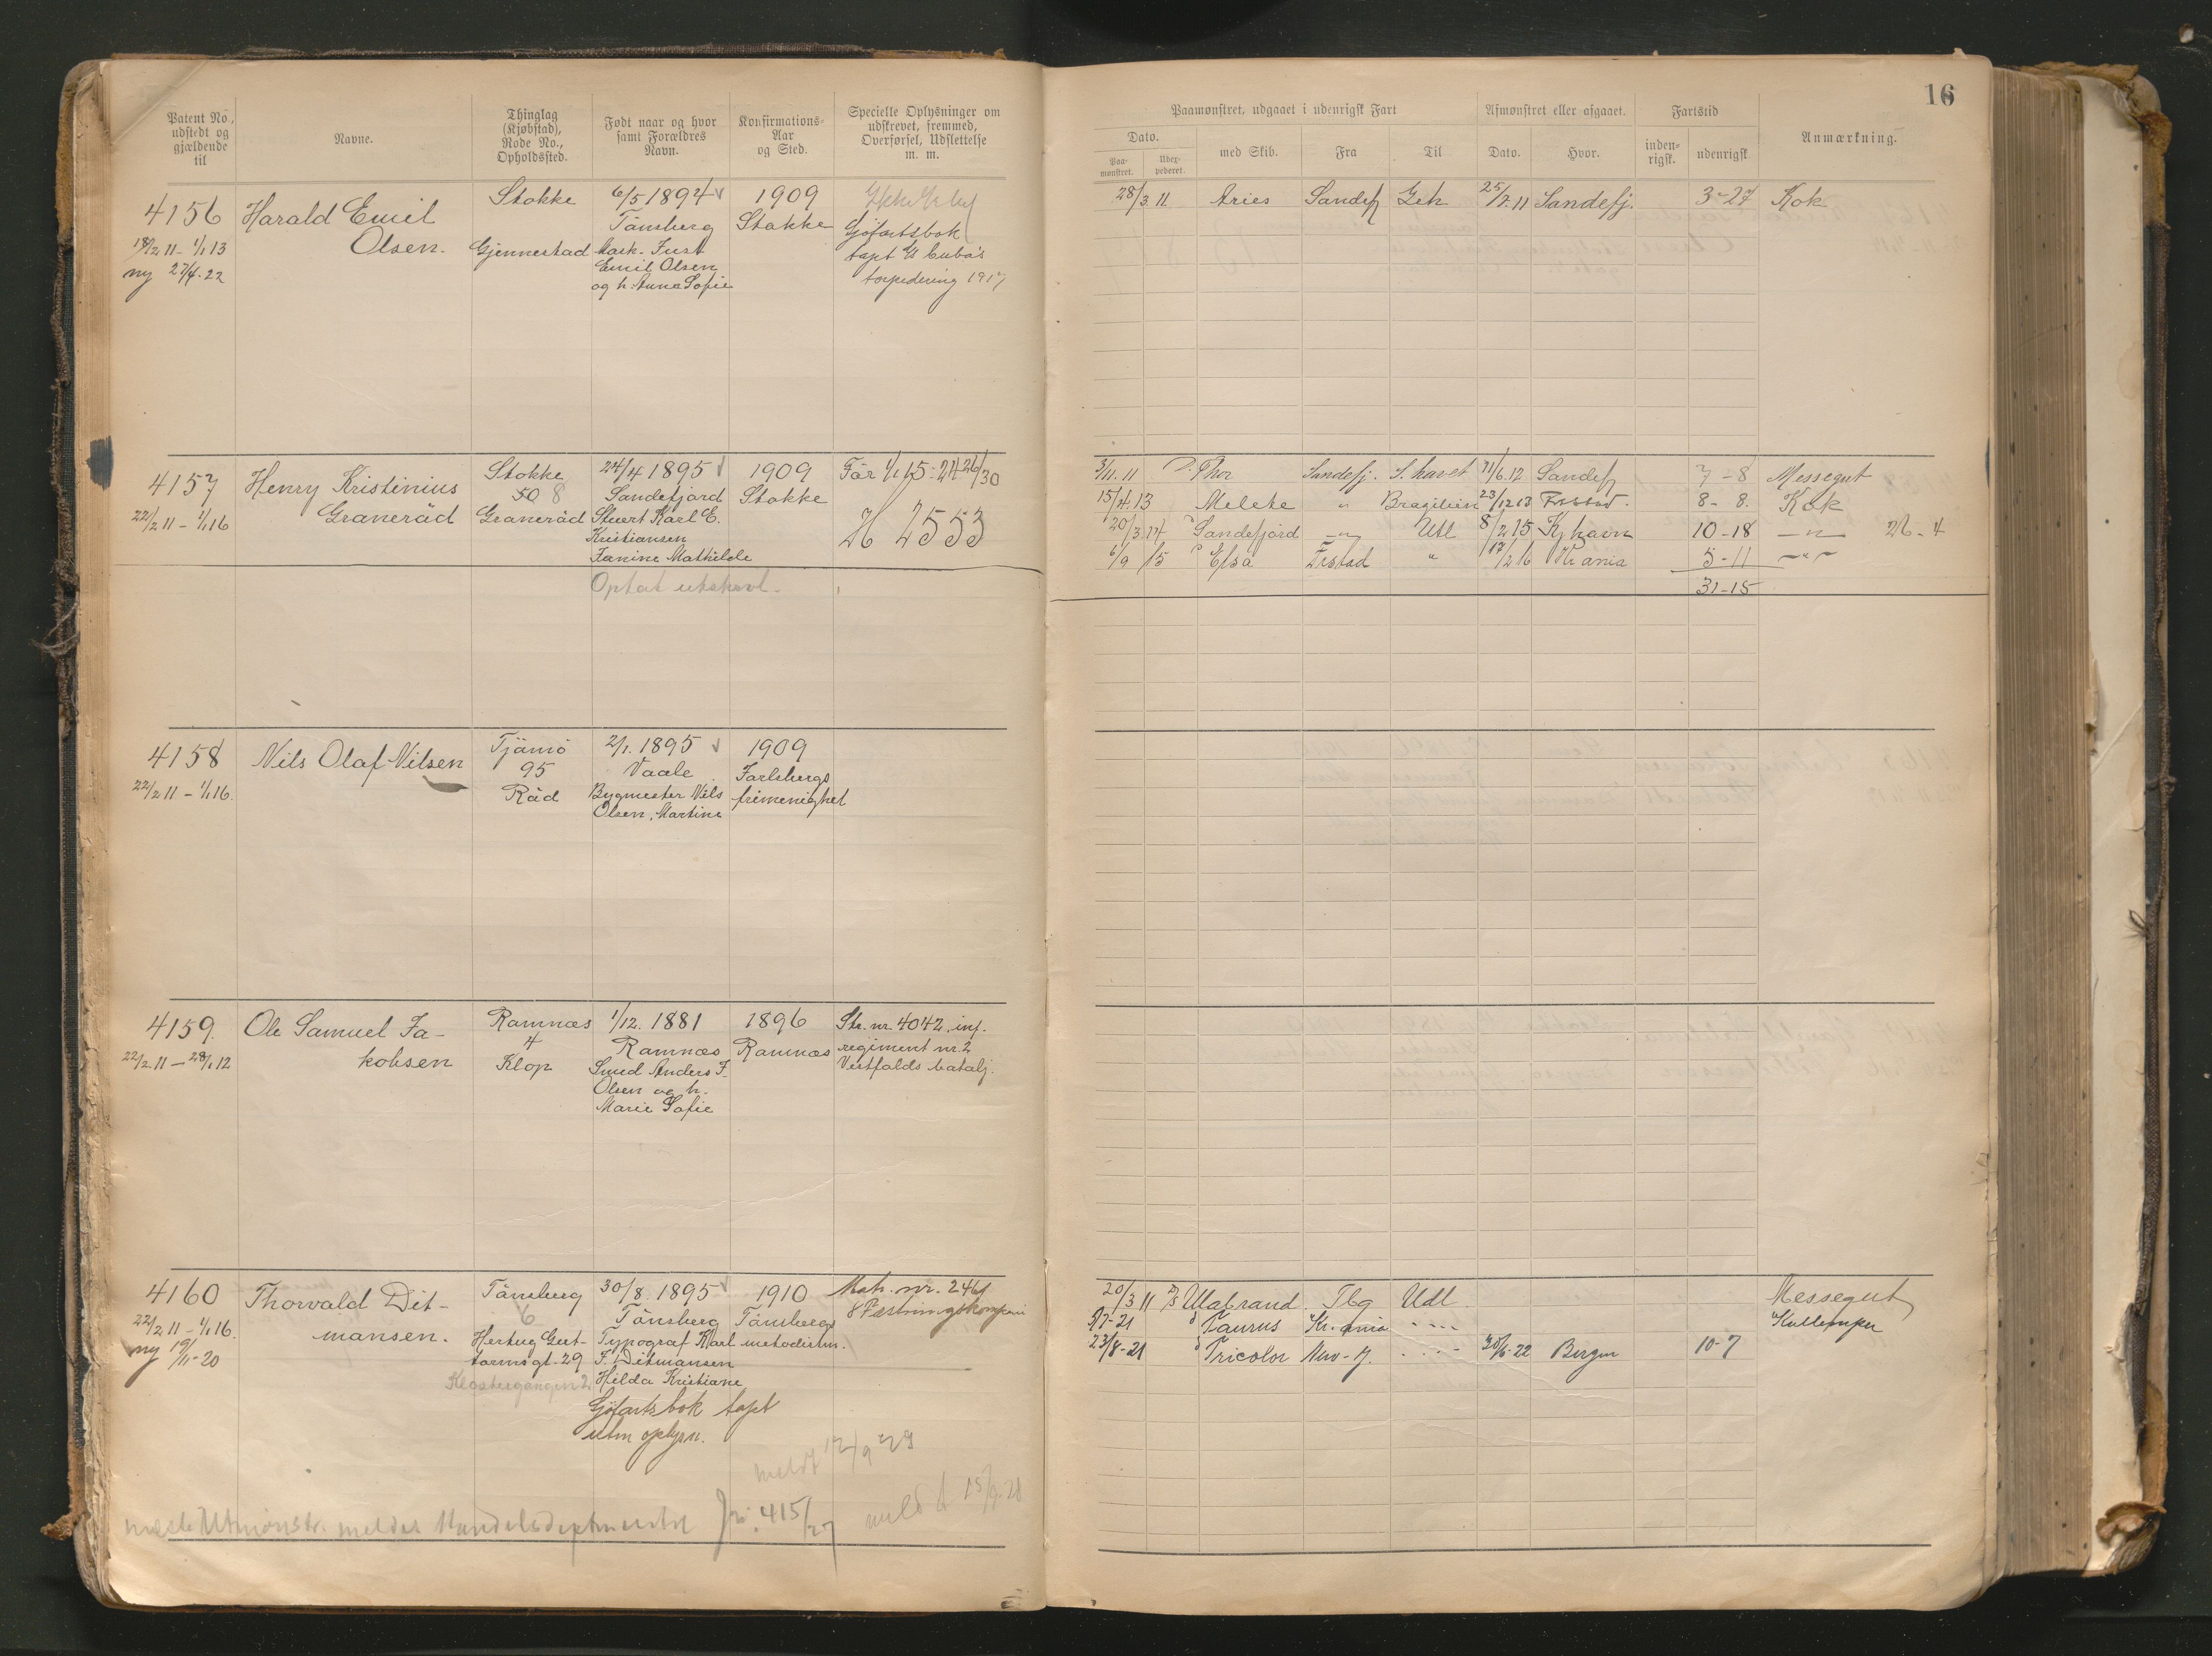 Patent No., udstedt og gjældende til
Navne.
Thinglag (Kjøbstad), Rode No., Opholdssted.
Født naar og hvor samt Forældres Navn.
Konfirmations-Aar og Sted.
Specielle Oplysninger om udskrevet, fremmed, Overførsel, Udslettelse m. m.
4156
18/2 11 - 1/1 13
ny 27/4-22
Harald Emil
Olsen.
Stokke
Gjennestad
6/5 1894
Tönsberg
Mask. Just
Emil Olsen
og h. Anna Sofie
1909
Stokke
Sjöfartsbok
tapt Cuba's
torpedering 1917
4157
22/2 11 - 1/1 16
Henry Kristinius
Graneröd
Stokke
50 8
Graneröd
24/4 1895
Sandefjord
Stuert Karl E.
Kristiansen
Janine Mathilde
1909
Stokke
H 2553
Optat utskevl.
4158
22/2 11 - 1/1 16.
Nils Olaf Nilsen
Tjömö
95
Röd
2/1. 1895
Vaale
Bygmester Nils
Olsen, Martine
1909
Jarlsbergs
frimenighet
4159.
22/2 11 - 28/1 12
Ole Samuel Ja-
kobsen
Ramnæs
4
Klop
1/12. 1881
Ramnæs
Smed Anders J.
Olsen og h.
Marie Sofie
1896
Ramnæs
Str. nr. 4042, inf.
regiment nr. 2
Vestfolds batalj.
4160
22/2 11 - 1/1 16.
ny 19/11-20
Thorvald Dit-
mansen.
Tönsberg
6
Hertug Gut-
tormsgt. 29
Klostergangen 2
30/8. 1895
Tönsberg
Typograf Karl
F. Ditmansen
Hilda Kristiane
1910
Tönsbergs
metodistm.
Matr. nr. 2461
Festningskompani
Sjöfartsbok tapt
utm oplysn.
meldt 12/9 29
næste Utmönstr. meldes Handelsdepartementet Jnr. 415/27 meldt 15/9-28
16
Paamønstret, udgaaet i udenrigsk Fart
Afmønstret eller afgaaet.
Fartstid
Anmærkning.
Dato.
Paa-mønstret.
Udex-pederet.
med Skib.
Fra
Til
Dato.
Hvor.
inden-rigsk.
udenrigsk
28/3 11 Aries Sandefj 25/7. 11 Sandefj. 3-27 Kok
3/11. 11 D. Thor Sandefj. S. havet 11/6. 12 Sandefj 7-8 Messegut
15/4. 13 Melete " Bragilien 23/12 13 8-8. Kok
20/3. 14 D Sandefjord -"- Utl 8/2 15 Kjhavn 10-18 -"- 26-4
6/9 15 D Elsa Frstad " 17/2 16 Kr ania 5-11 -"-
31-15
20/3 11 D/S Ulabrand Tbg Udl Messegut
3/7-21 Taurus Kr. ania -"- Kullemper
23/8-21 Tricolor New-Y. -"- 30/6-22 Bergen 10-7